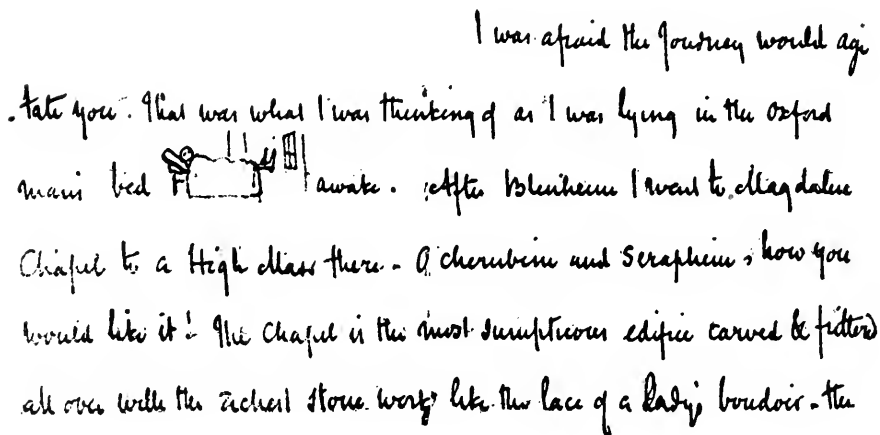 I was afraid the Journey would agi
-tate you. That was what I was thinking of as I was lying in the Oxford
man's bed awake. After Blenheim I went to Magdalene
Chapel to a High Mass there - O cherubim and Seraphim, how you
would like it! The Chapel is the most sumptuous edifice carved & fretted
all over with the richest stone work like the lace of a Lady's boudoir - the